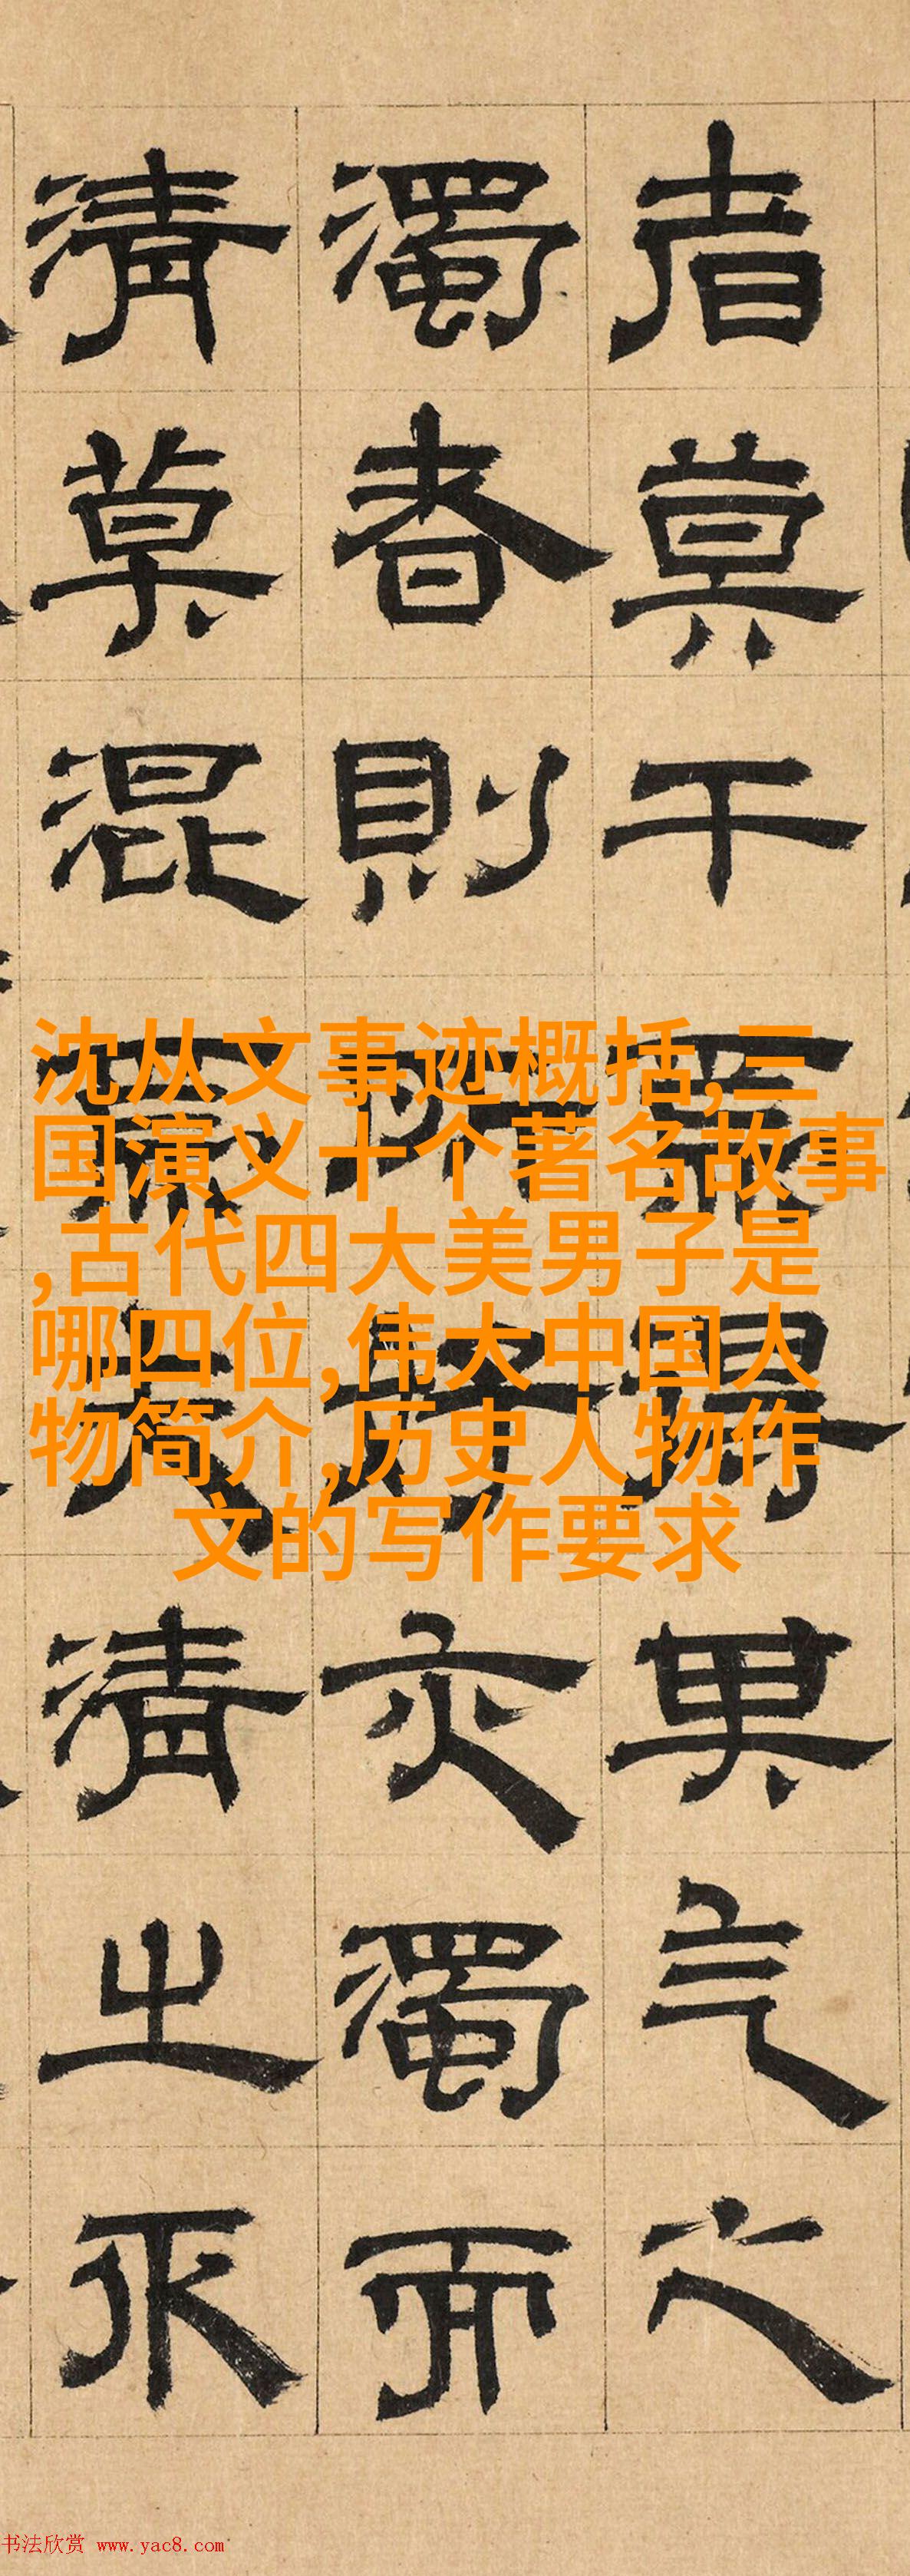 者莫干得其气之
濁者則所好亦濁而
清莫混夫清之
沈从文事迹概括,三
国演义十个著名故事
,古代四大美男子是
哪四位,伟大中国人
物简介,历史人物作
文的写作要求
书法欣赏 www.yac8.com